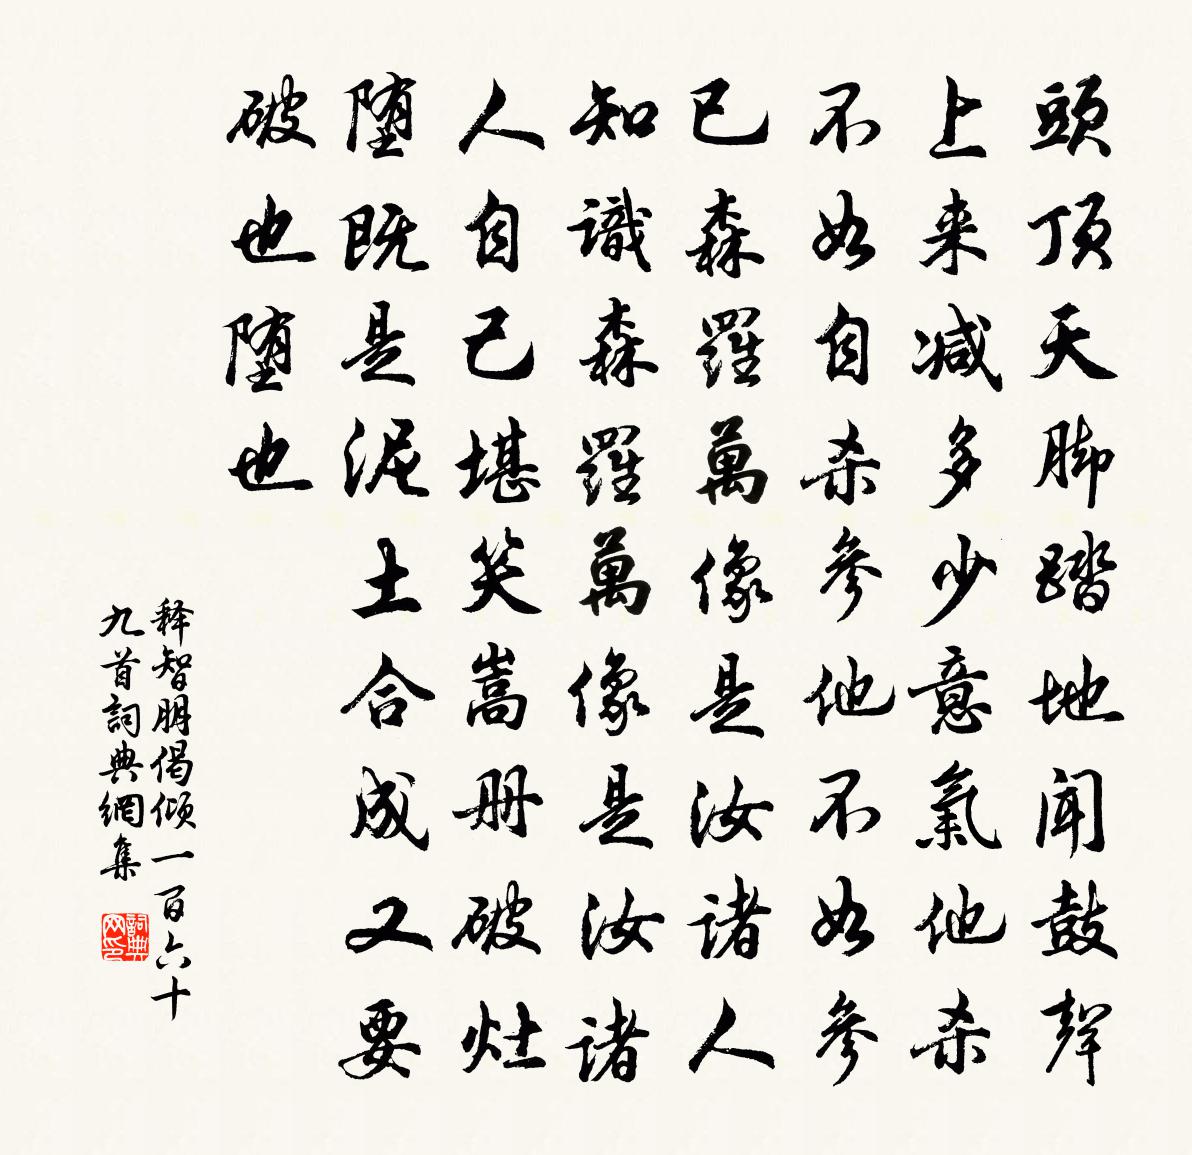 頭頂天脚踏地闻鼓聲
上来减多少意氣他杀
不如自杀參他不如參
已森羅萬像是汝诸人
知識森羅萬像是汝诸
人自己堪笑嵩册破灶
堕既是泥土合成又要
破也堕也
释智朋偈倾一百六十
九首詞典網集
詞典網印